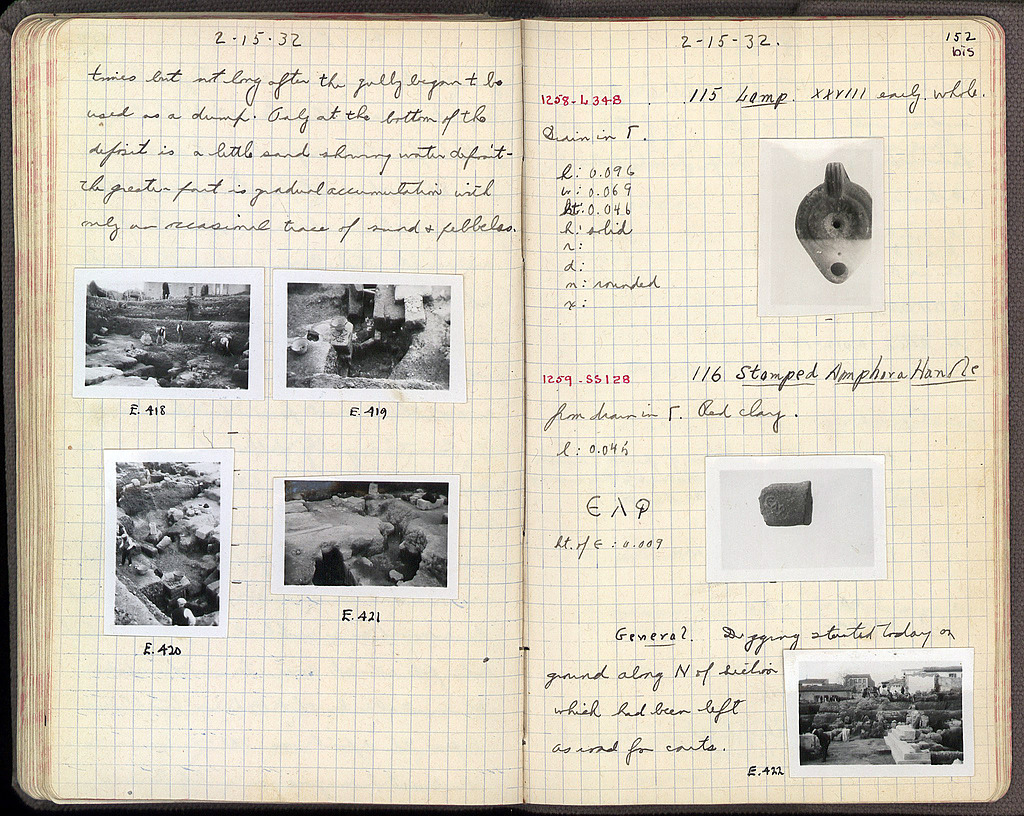 2-15-32
times but not long after the gully began to be
used as a dump. Only at the bottom of the
deposit is a little sand showing water deposit -
the greater part is gradual accumulation with
only an occasional trace of sand & pebbles.
E.418
E.419
E.420
E.421
2-15-32.
152
bis
1258-L348
115 Lamp. XXVIII early. whole.
Drain in Γ.
l: 0.096
w: 0.069
ht: 0.046
h: solid
r:
d:
n: rounded
x:
1259-SS128
116 Stamped Amphora Handle
from drain in Γ. Red clay.
l: 0.045
Є Λ Φ
ht. of Є: 0.009
General. Digging started today on
ground along N of section
which had been left
as road for carts.
E.422